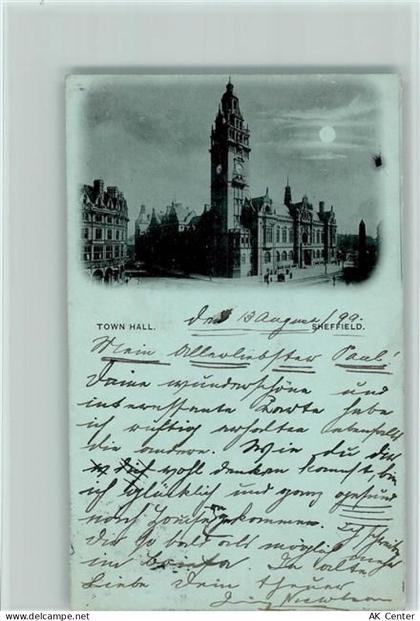 TOWN HALL. SHEFFIELD.
den 13 August/99.
Mein Allerliebster Paul!
Deine wunderschöne und
interessante Karte habe
ich richtig erhalten ebenfalls
die andere. Wie du dir
wohl denken kannst, bin
ich glücklich und ganz gesund
nach home gekommen.
Ich schreibe
dir so bald als möglich mehr
im Briefe. In alter
Liebe Dein theurer
AK Center